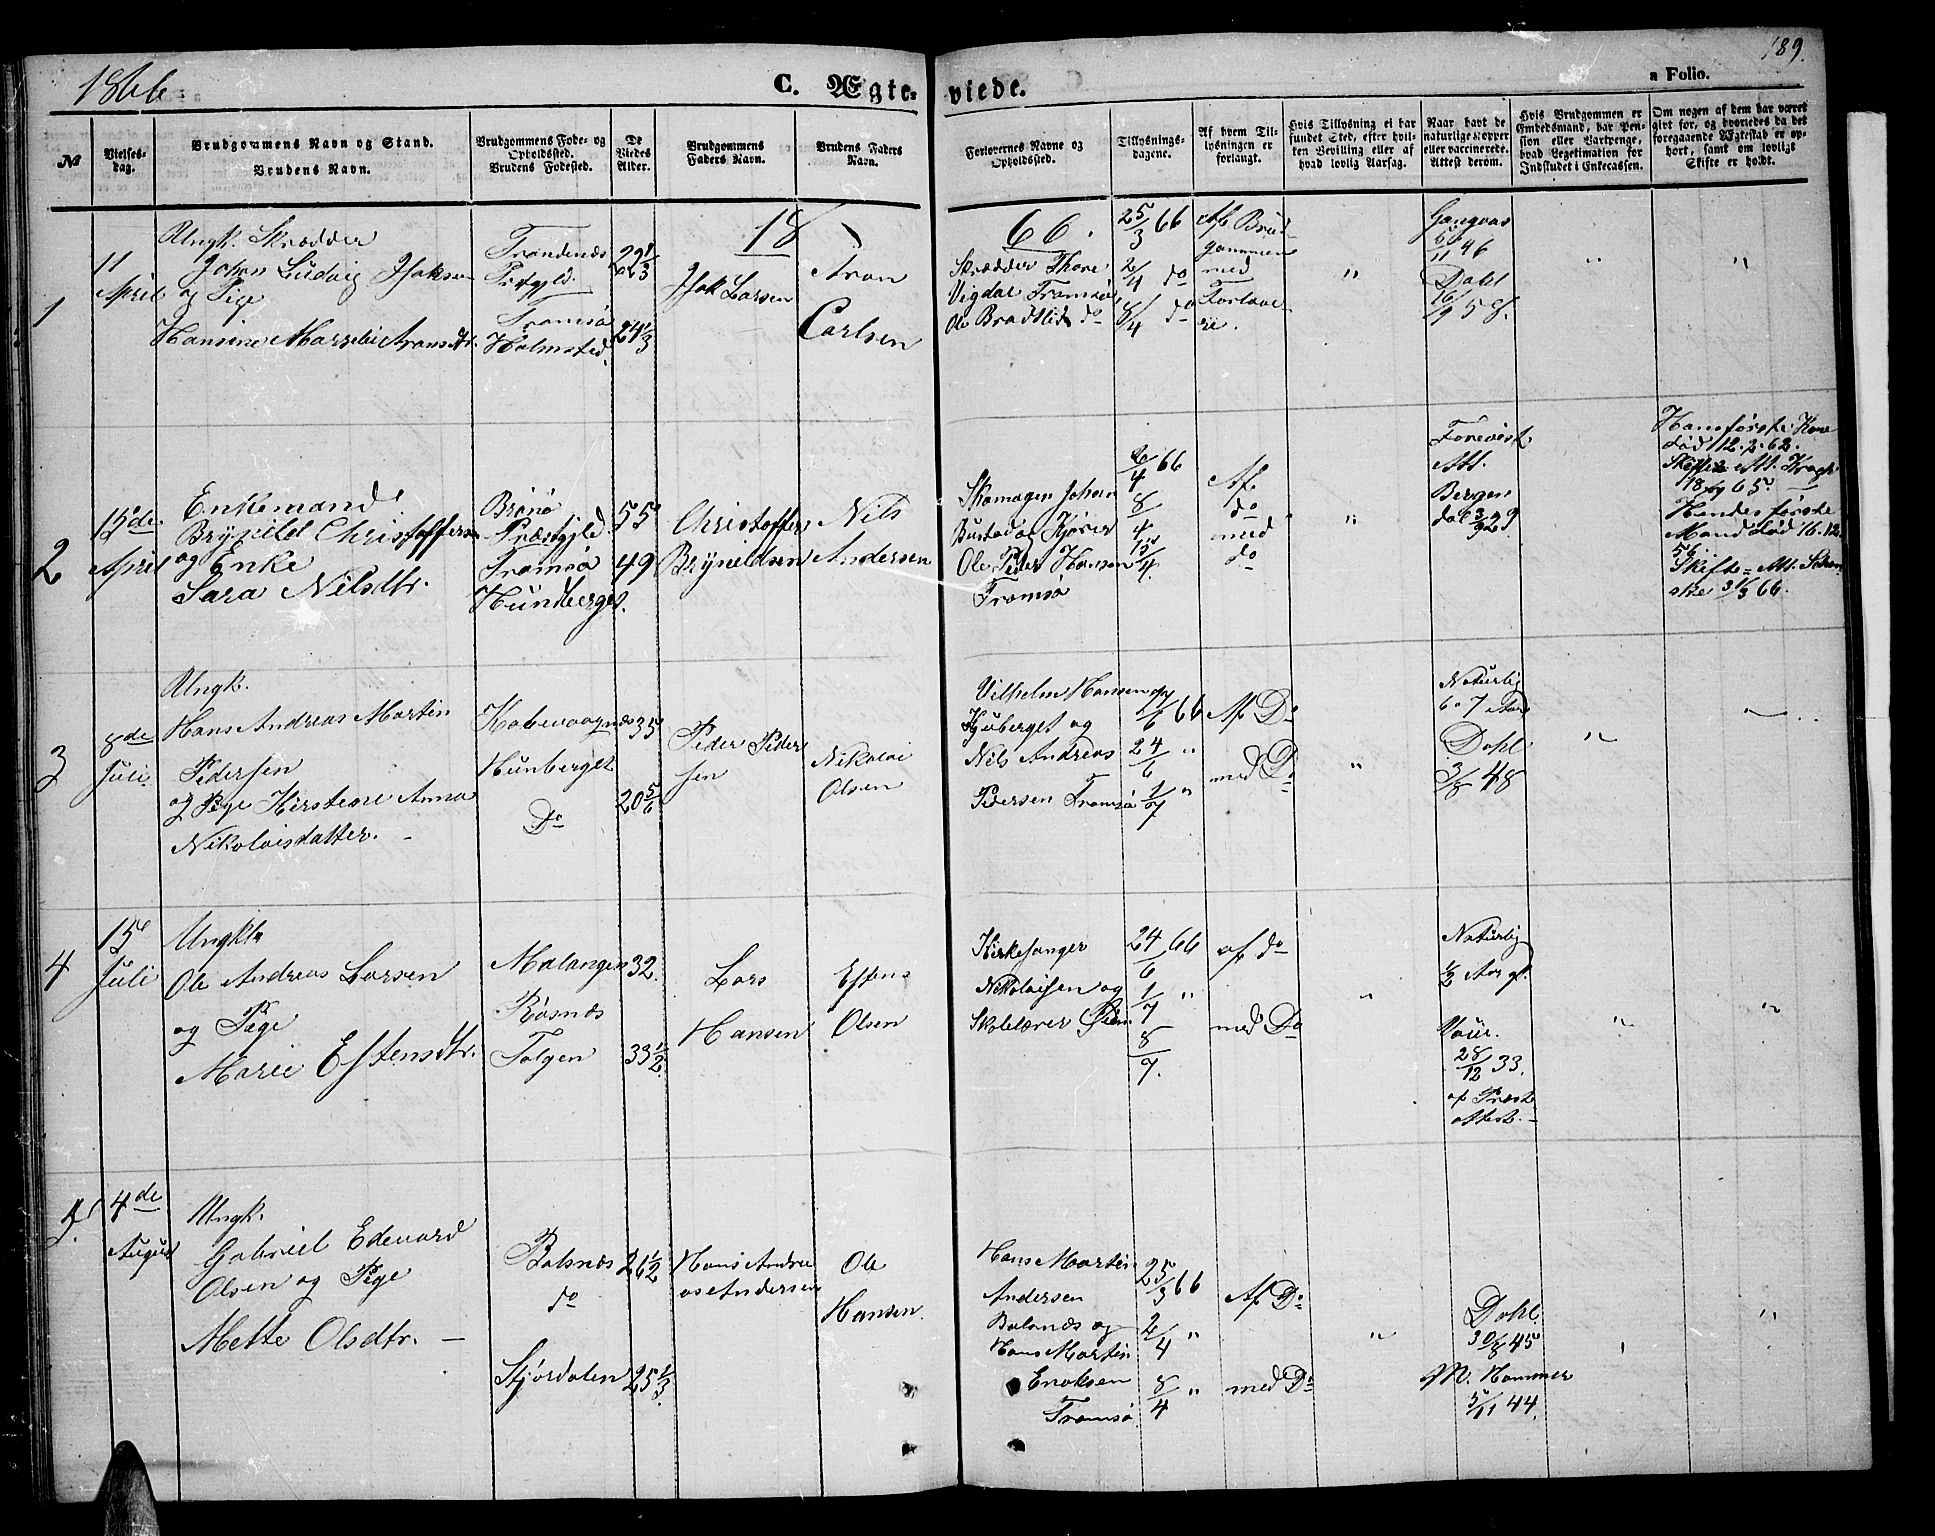 1866
C. Ægteviede.
a Folio.
189.
No
Vielsesdag.
Brudgommens Navn og Stand.
Brudens Navn.
Brudgommens Føde- og
Opholdssted.
Brudens Fødested.
De
Viedes
Alder.
Brudgommens
Faders Navn.
Brudens Faders
Navn.
Forlovernes Navne og
Opholdssted.
Tillysnings-
dagene.
Af hvem Til-
lysningen er
forlangt.
Hvis Tillysning ei har
fundet Sted, efter hvil-
ken Bevilling eller af
hvad lovlig Aarsag.
Naar havt de
naturlige Kopper
eller vaccinerede.
Attest derom.
Hvis Brudgommen er
Embedsmand, har Pen-
sion eller Vartpenge,
hvad Legitimation for
Indskudet i Enkecassen.
Om nogen af dem har været
gift før, og hvorledes da det
foregaaende Ægteskab er op-
hørt, samt om lovligt
Skifte er holdt.
1866.
1
11
April
Ungk. Skrædder
Johan Ludvig Isaksen
og Pige
Hansine Marselie Aronsdtr.
Trondenæs
Prstgjld.
Tromsø
Holmsted.
22 1/3
24 1/3
Isak Larsen
Aron
Carlsen
Skrædder Thore
Vigdal Tromsø
Ole Bradtlid do
25/3 66
2/4 do
8/4 do
Af Brud-
gommen
med
Forlove-
re.
"
46
Dahl
16/9 58.
"
"
2
15de
April
Enkemand
Brynild Christoffersen
og Enke
Sara Nilsdtr.
Brønø
Præstgjld.
Tromsø
Hundberget.
55
49
Christoffer
Bryneldsen
Nils
Andersen
Skomager Johan
Bustad og Kjører
Ole Peder Hansen
Tromsø
2/4 66
8/4
15/4.
Af
do
med
do
"
Forevist
Att.
Bergen
dal 3/9 29
Hans første Kone
død 12.2.62.
Skifte Att.
65.
Hendes første
Mand død 16.12.
56.
Skifte Att.
31/3 66.
3
8de
Juli
Ungk.
Hans Andreas Martin
Pedersen
og Pige Kirstene Anna
Nikolaisdatter.
Kobevaagnæs
Hunberget
Do
35
20 5/6
Peder Peder
sen
Nikolai
Olsen
Vilhelm Hansen
Kjuberget og
Nils Andreas
Pedersen Tromsø
17/6 66
24/6 "
1/7 "
Af Do
med Do
"
Naturlig
6 o 7 Aar
Dahl
3/8 48
"
4
15
Juli
Ungkl
Ole Andreas Larsen
og Pige
Marie Estensdtr.
Malangen
Røsnæs
Tolgen
32
33 1/2
Lars
Hansen
Esten
Olsen
Kirkesanger
Nikolaisen og
Skolelærer
24/6 66
1/7 "
8/7.
af do
med Do
"
Naturlig
1/2 Aar gl.
Vacc.
28/12 33.
af Præste
attest.
"
"
5.
4de
August
Ungk.
Gabriel Edevard
Olsen og Pige
Mette Olsdtr.
Balsnæs
do
Stjørdalen
26 1/2
25 1/3
Hans Andre
as Andersen
Ole
Hansen.
Hans Martin
Andersen
Balsnæs og
Hans Martin
Enoksen
Tromsø
25/3 66
2/4 "
8/4 "
Af Do
med Do
"
Dahl
30/8 45
M. Hammer
5/11 44.
"